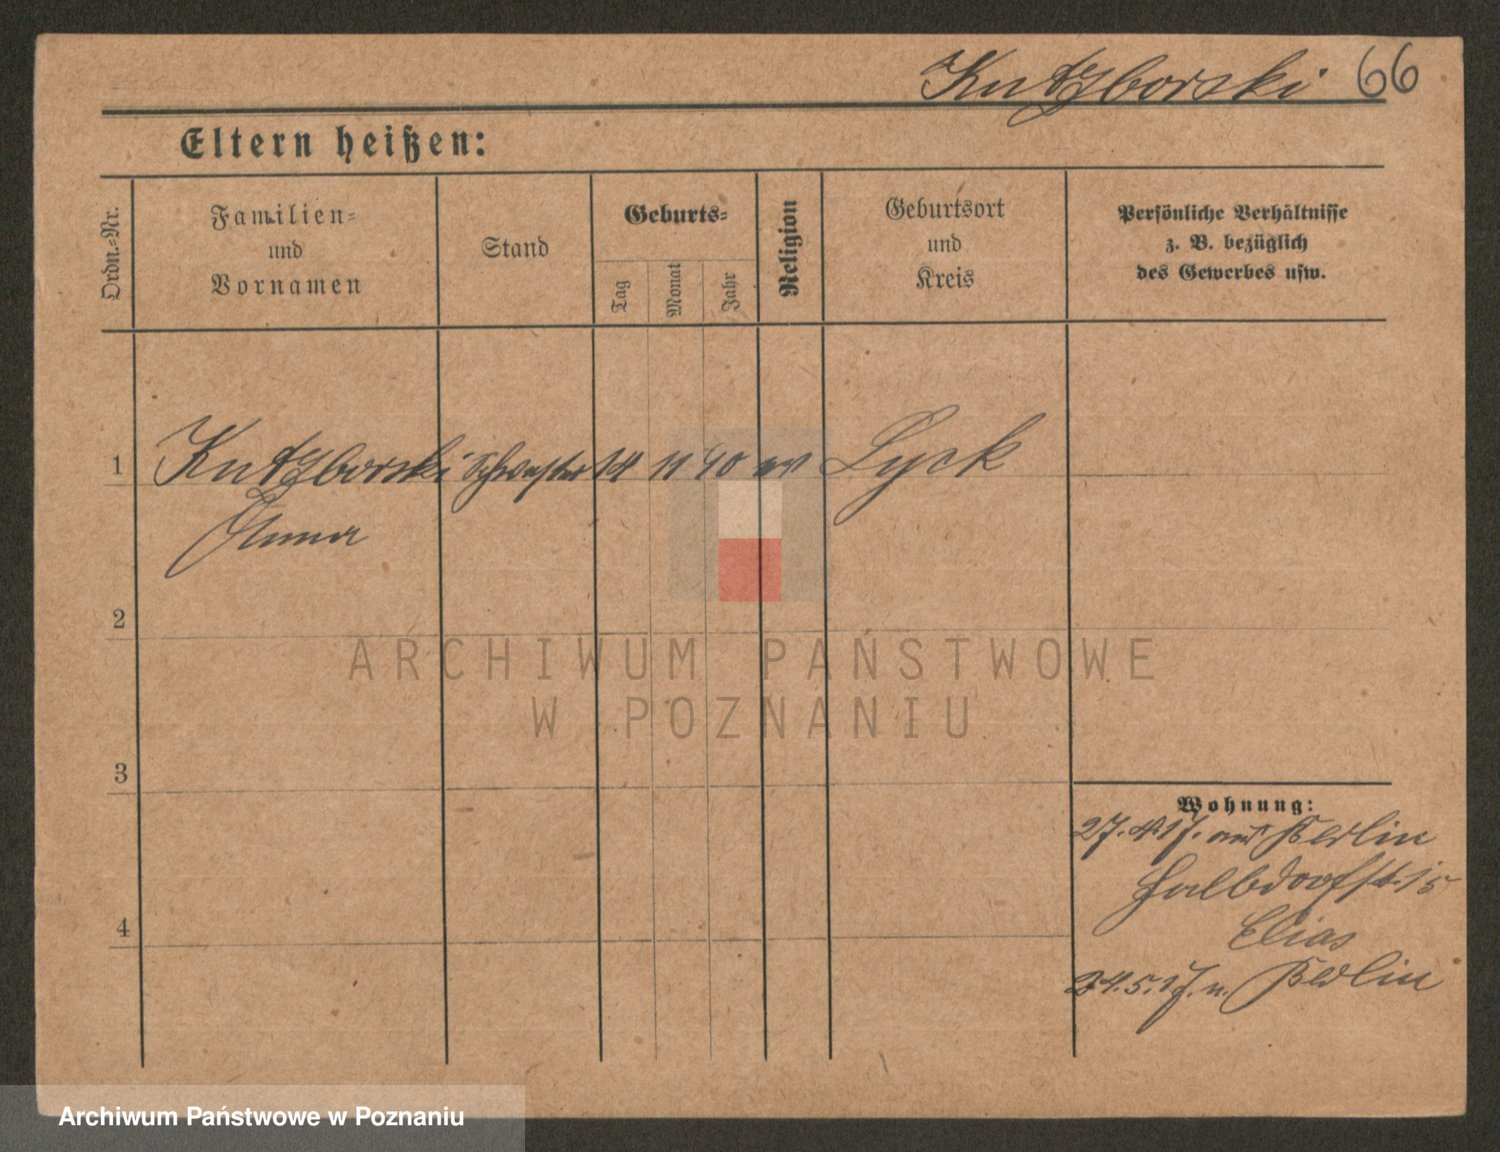 Kutzborski 66
Eltern heißen:
Ordn.-Nr.
Familien-
und
Vornamen
Stand
Geburts-
Tag
Monat
Jahr
Religion
Geburtsort
und
Kreis
Persönliche Verhältnisse
z. B. bezüglich
des Gewerbes usw.
1 Kutzborski Schwester 14 11 90 ev Lyck
Anna
2
ARCHIWUM PAŃSTWOWE
W POZNANIU
3
Wohnung:
27.4.17. aus Berlin
Halbdorfstr. 15
Elias
4
24.5.17. n. Berlin
Archiwum Państwowe w Poznaniu